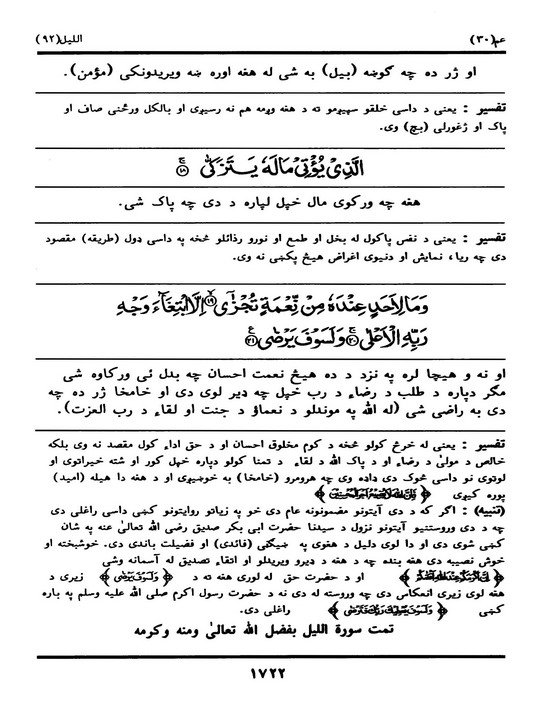 عم (٣٠)
الليل (٩٢)
او ژر ده چه گوښه (بيل) به شی له هغه اوره ښه ويريدونکی (مؤمن).
تفسير : يعنی د داسی خلقو سپيږمو ته د هغه وږمه هم نه رسيږی او بالکل ورځنی صاف او
پاک او ژغورلی (بچ) وی.
الَّذِىْ يُؤْتِىْ مَالَهٗ يَتَزَكّٰى ۚ ﴿۱۸﴾
هغه چه ورکوی مال خپل لپاره د دی چه پاک شی.
تفسير : يعنی د نفس پاکول له بخل او طمع او نورو رذائلو څخه په داسی ډول (طريقه) مقصود
دی چه رياء، نمايش او دنيوی اغراض هيڅ پکښی نه وی.
وَمَا لِاَحَدٍ عِنْدَهٗ مِنْ نِّعْمَةٍ تُجْزٰٓى ۙ ﴿۱۹﴾ اِلَّا ابْتِغَآءَ وَجْهِ
رَبِّهِ الْاَعْلٰى ۚ ﴿۲۰﴾ وَلَسَوْفَ يَرْضٰى ۧ ﴿۲۱﴾
او نه و هيچا لره په نزد د ده هيڅ نعمت احسان چه بدل ئی ورکاوه شی
مگر دپاره د طلب د رضاء د رب خپل چه ډير لوی دی او خامخا ژر ده چه
دی به راضی شی (له الله په موندلو د نعماؤ د جنت او لقاء د رب العزت).
تفسير : يعنی له خرڅ کولو څخه د کوم مخلوق احسان او د حق اداء کول مقصد نه وی بلکه
خالص د مولیٰ د رضاء او د پاک الله د لقاء د تمنا کولو دپاره خپل کور او شته خيراتوی او
لوټوی نو داسی څوک دی ډاډه وی چه هرومرو (خامخا) به خوښيږی او د هغه دا هيله (اميد)
پوره کيږی
(تنبيه) : اگر که د دی آيتونو مضمونونه عام دی خو په زياتو روايتونو کښی داسی راغلی دی
چه د دی وروستنيو آيتونو نزول د سيدنا حضرت ابی بکر صديق رضی الله تعالیٰ عنه په شان
کښی شوی دی او دا لوی دليل د هغوی په ښيگڼی (فائدی) او فضيلت باندی دی. خوشبخته او
خوش نصيبه دی هغه بنده چه د هغه د ډيرو ويريدلو او اتقاء تصديق له آسمانه وشی
او د حضرت حق له لوری هغه ته د ﴿ وَلَسَوْفَ يَرْضٰى ﴾ زيری د
هغه لوی زيری انعکاس دی چه وروسته له دی نه د حضرت رسول اکرم صلی الله عليه وسلم په باره
کښی ﴿ وَلَسَوْفَ يُعْطِيْكَ رَبُّكَ فَتَرْضٰى ﴾ راغلی دی.
تمت سورة الليل بفضل الله تعالیٰ ومنه وکرمه
١٧٢٢